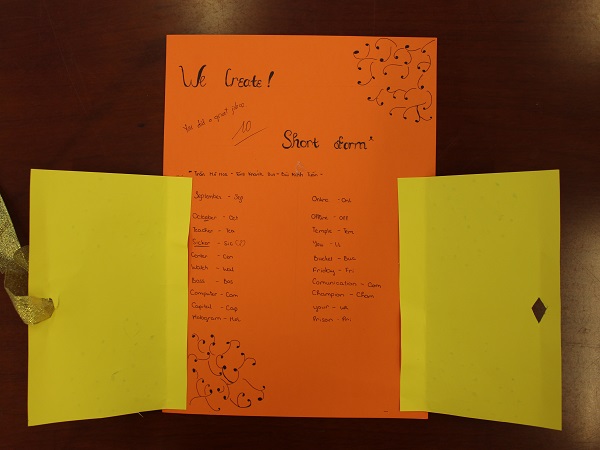 We Create!
You did a great job
10
Short form
September - Sep
October - Oct
Teacher - Tea
Sister - Sis (?)
Center - Cen
Watch - Wat
Boss - Bos
Computer - Com
Capital - Cap
Online - Onl
Offline - Off
Temple - Tem
You - U
Bucket - Buc
Friday - Fri
Comunication - Com
Champion - Cham
your - ur
Prison - Pri